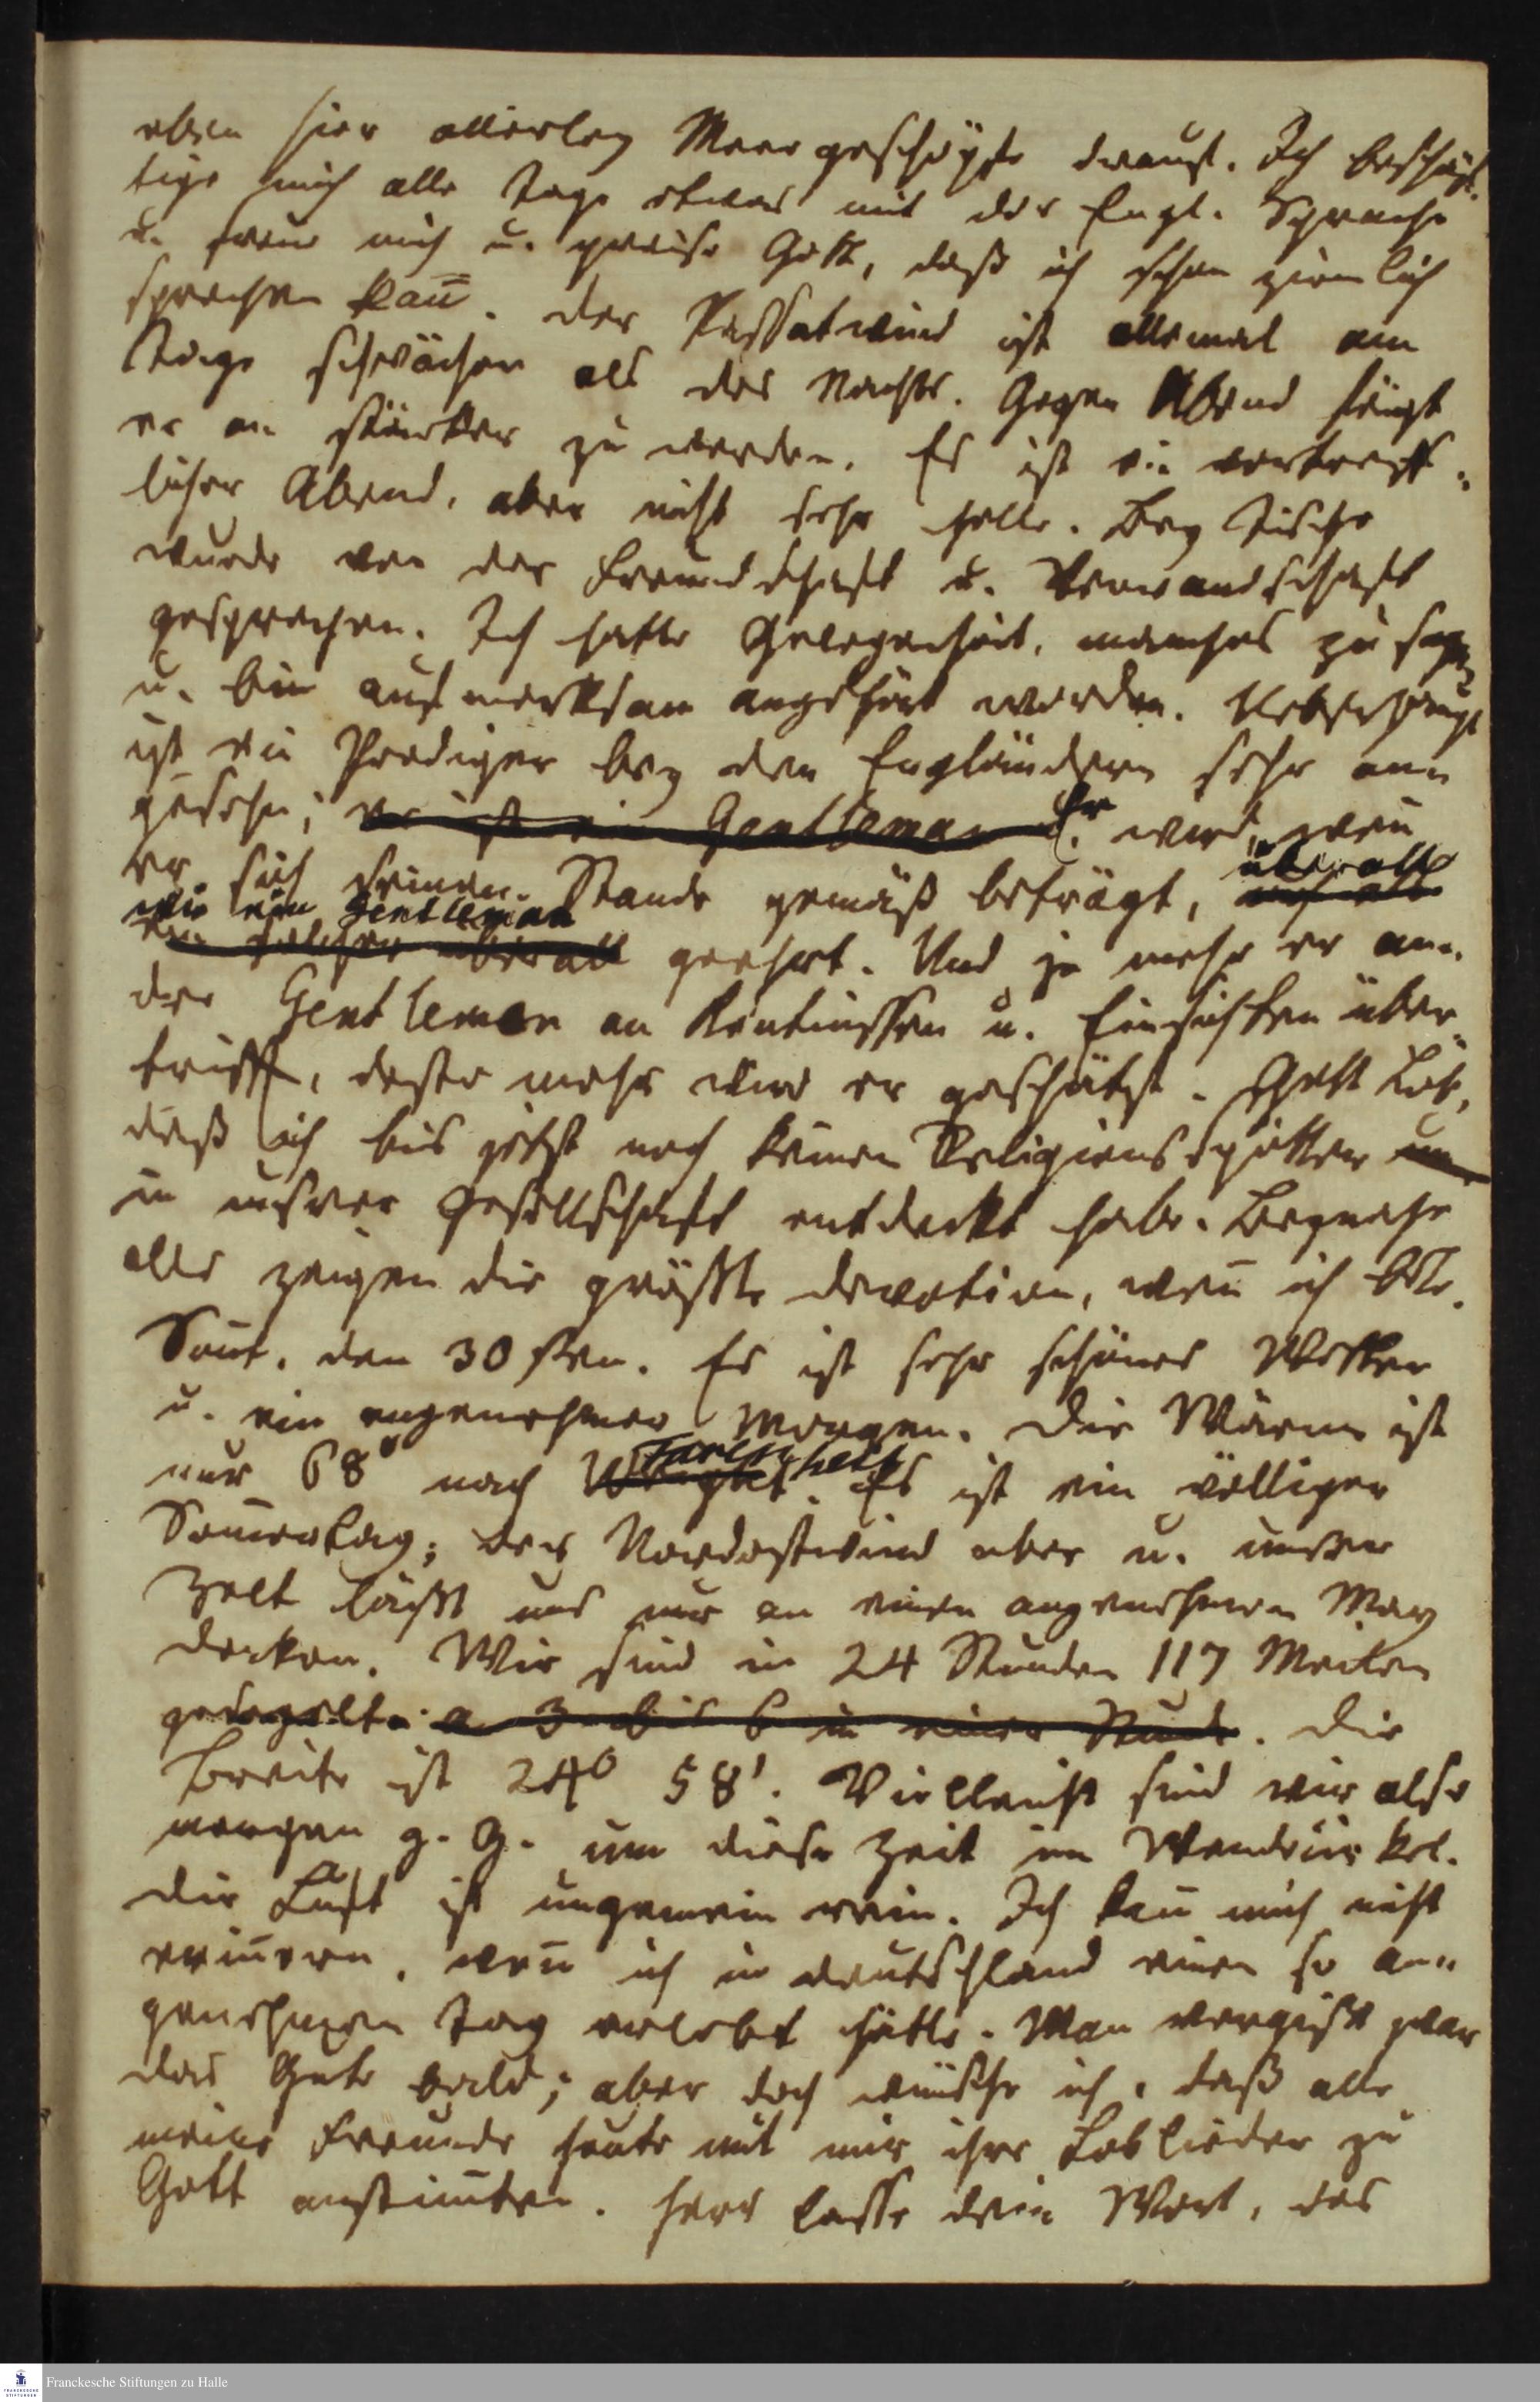 eben hier allerley Meergeschöpfe draus. Ich beschäf-
tige mich alle Tage etwas mit der Engl. Sprache
u. freue mich u. preise Gott, daß ich schon ziemlich
sprechen kan̄. Der Passatwind ist allemal am
Tage schwächer als des Nachts. Gegen Abend fängt
er an stärker zu werden. Es ist ein vortreff-
licher Abend, aber nicht sehr helle. Bey Tische
wurde von der Freundschaft u. Verwandschaft
gesprochen. Ich hatte Gelegenheit, manches zu sagen
u. bin aufmerksam angehört worden. Ueberhaupt
ist ein Prediger bey den Engländern sehr an-
gesehn; er ist ein Gentleman u. Er wird, wen̄
er sich seinem Stande gemäß beträgt, überall
wie ein Gentleman
ein solcher überall geehrt. Und je mehr er an-
dre Gentlemen an Kentnissen u. Einsichten über-
trifft, desto mehr wird er geschätzt. Gott Lob,
daß ich bis jetzt noch keinen Religionsspötter
in unsrer Gesellschaft entdeckt habe. Beynahe
alle zeigen die größte Devotion, wen̄ ich bete.
Sont. den 30 sten. Es ist sehr schönes Wetter
u. ein angenehmer Morgen. Die Wärme ist
nur 68° nach Farenheit. Es ist ein völliger
Som̄ertag; der Nordostwind aber u. unser
Zelt läßt uns nur an einen angenehmen May
denken. Wir sind in 24 Stunden 117 Meilen
gesegelt. a 3 bis 6 in einer Stunde. Die
Breite ist 24° 58'. Vielleicht sind wir also
morgen g. G. um diese Zeit im Wendezirkel.
Die Luft ist ungemein rein. Ich kan̄ mich nicht
erin̄ern, wen̄ ich in Deutschland einen so an-
genehmen Tag erlebt hätte. Man vergißt zwar
das Gute bald; aber doch wünsche ich, daß alle
meine Freunde heute mit mir ihre Loblieder zu
Gott anstim̄ten. Herr lasse dein Wort, das
Franckesche Stiftungen zu Halle